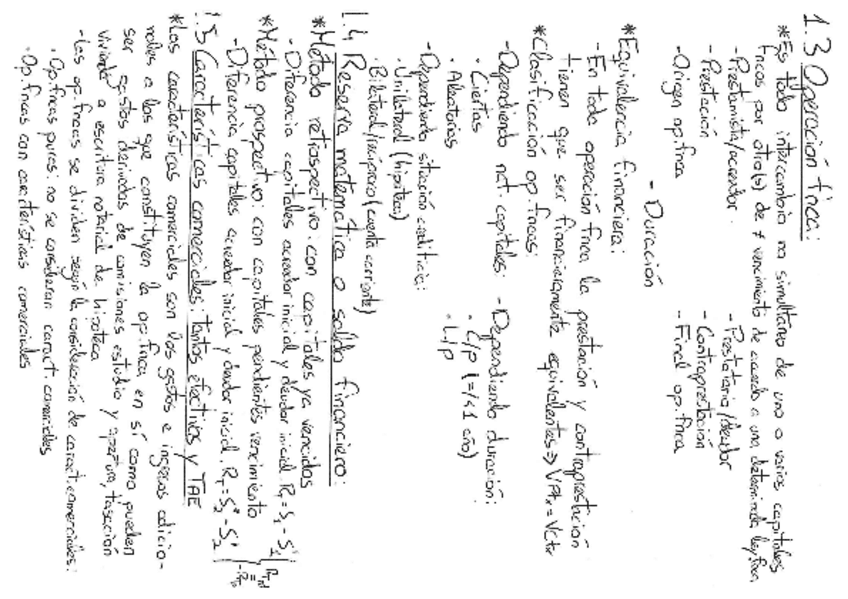 1.3 Operación fnca:
*Es todo intercambio no simultáneo de uno o varios capitales
fncos por otro(s) de ≠ vencimiento de acuerdo a una determinada ley fnca
-Prestamista/acreedor. -Prestatario/deudor
-Prestación -Contraprestación
-Origen op.fnca -Final op.fnca
-Duración
*Equivalencia financiera:
-En toda operación fnca la prestación y contraprestación
tienen que ser financieramente equivalentes ⇒
*Clasificación op.fncas:
-Dependiendo nat. capitales: -Dependiendo duración:
·Ciertas ·C/p (=/<1 año)
·Aleatorios ·L/p
-Dependiendo situación crediticia:
·Unilateral (hipoteca)
·Bilateral/recíproca (cuenta corriente)
1.4 Reserva matemática o saldo financiero:
*Método retrospectivo: con capitales ya vencidos
-Diferencia capitales acreedor inicial y deudor inicial
*Método prospectivo: con capitales pendientes vencimiento
-Diferencia capitales acreedor inicial y deudor inicial
1.5 Características comerciales: tantos efectivos y TAE
*Las características comerciales son los gastos e ingresos adicio-
nales a los que constituyen la op.fnca en sí como pueden
ser gastos derivados de comisiones estudio y apertura, tasación
vivienda o escritura notarial de hipoteca
-Las op.fncas se dividen según la consideración de caract.comerciales:
·Op.fncas puras: no se consideran caract.comerciales
·Op.fncas con características comerciales